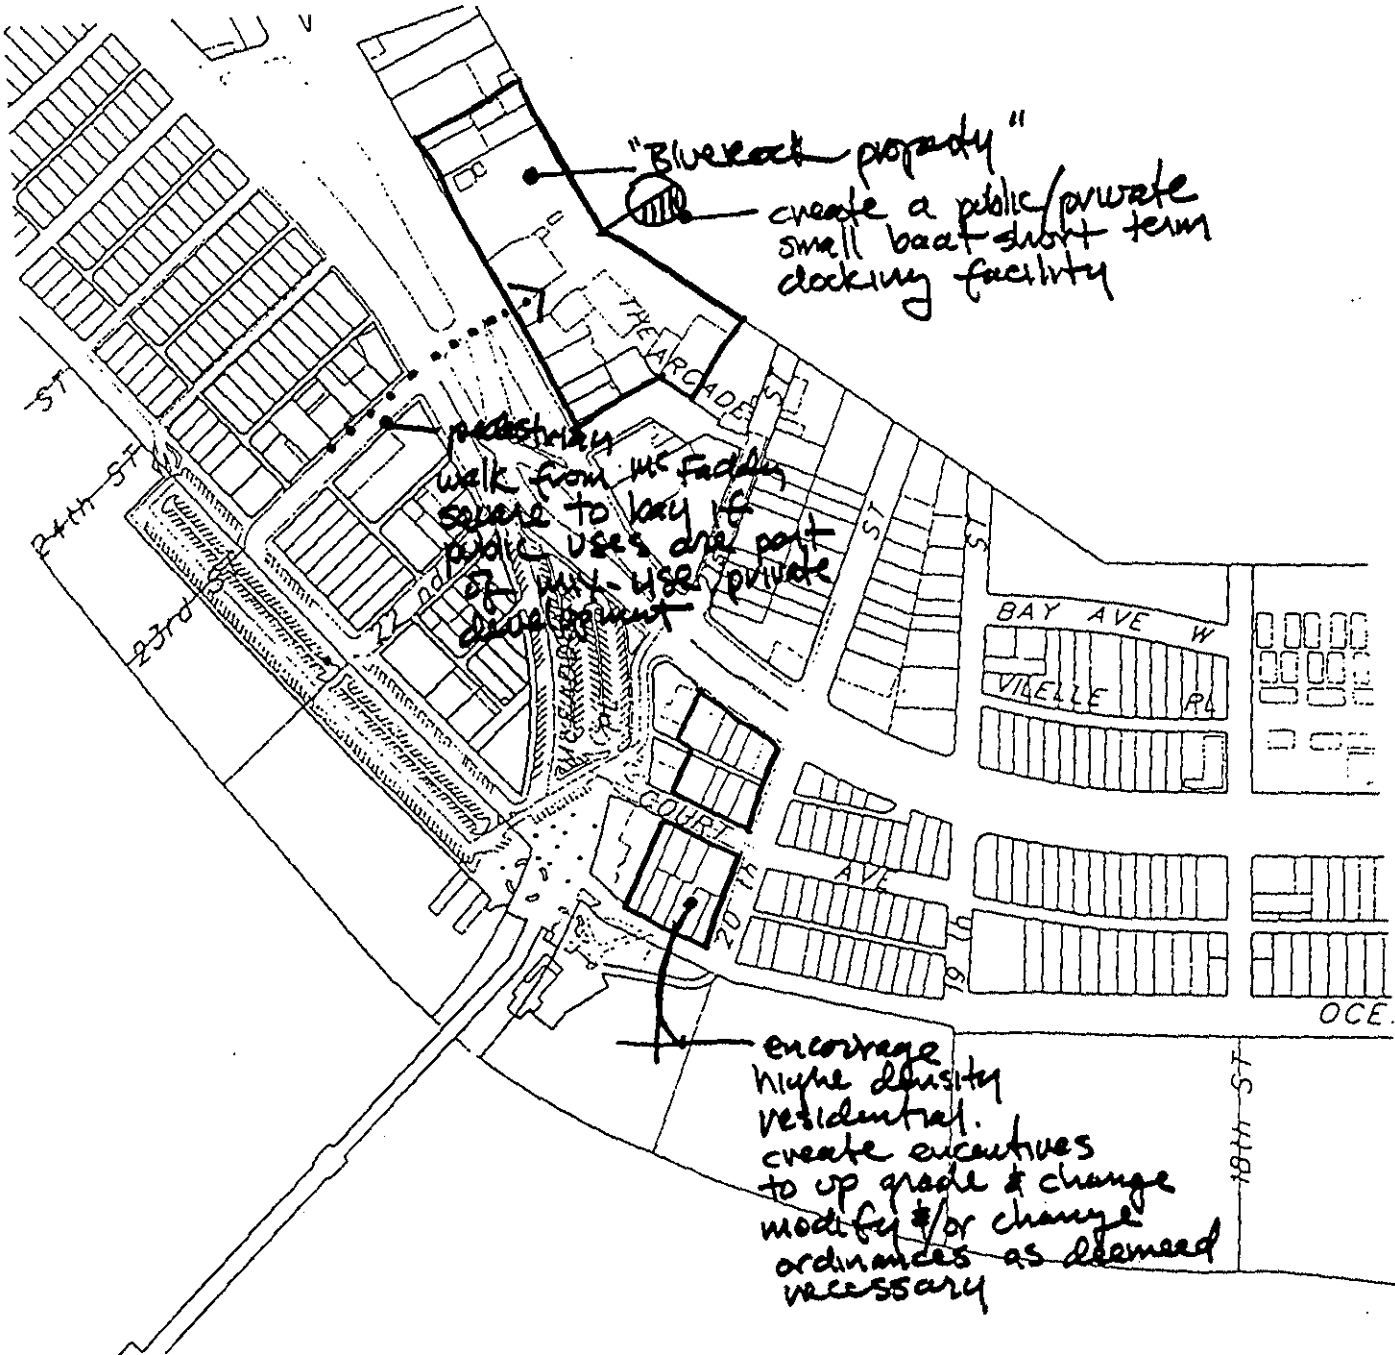 "Bluerock property"
create a public/private
small boat short term
docking facility
THE ARCADE
ST
ST
24th ST
23rd ST
22 nd
pedestrian
walk from Mc Fadden
square to bay if
public uses are part
of mix-use private
development
ST
ST
BAY AVE W
VILELLE PL
McFADDEN
PL
COURT
AVE
20 TH
19 TH
OCE.
18TH ST
encourage
highe density
residential.
create encentives
to up grade & change
modify &/or change
ordinances as deemeed
necessary